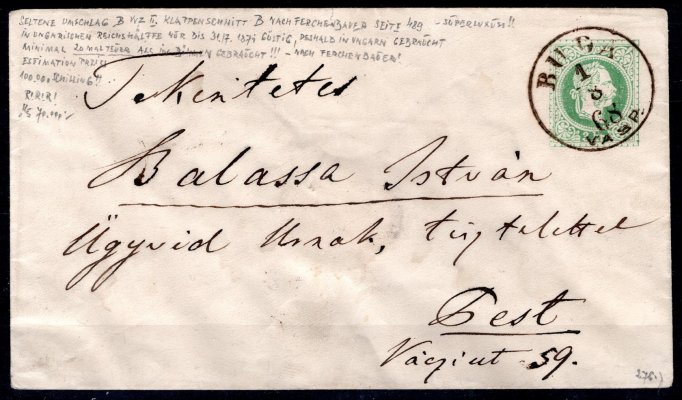 SELTENE UMSCHLAG B VIZ II. KLAPPENSCHNITT B NACH FERCHENBAUER SEITE 489 - SUPERLUXUS!!
IN UNGARISCHEN REICHSHÄLFTE NUR BIS 31.7. 1871 GÜLTIG, DESHALB IN UNGARN GEBRAUCHT
MINIMAL 20 MAL TEUER ALS IN BÖHMEN GEBRAUCHT!!! - NACH FERCHENBAUER!
ESTIMATION
100.000 SCHILLING!!
RRRR!
70.000
BUDA
1
8
68
Tekintetes
Balassa István
Ügyvid Urnak, tisztelettel
Pest
Váczi ut 59.